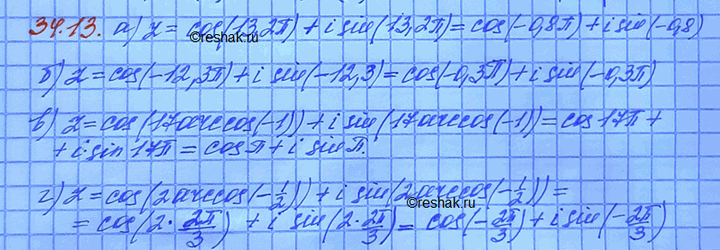 34.13. а) z = cos(13,2π) + i sin(13,2π) = cos(-0,8π) + i sin(-0,8)
©reshak.ru
б) z = cos(-12,3π) + i sin(-12,3) = cos(-0,3π) + i sin(-0,3π)
в) z = cos(17arccos(-1)) + i sin(17arccos(-1)) = cos 17π +
+ i·sin 17π = cos π + i sin π.
г) z = cos(2arccos(-1/2)) + i sin(2arccos(-1/2)) =
©reshak.ru
= cos(2·2π/3) + i sin(2·2π/3) = cos(-2π/3) + i sin(-2π/3)